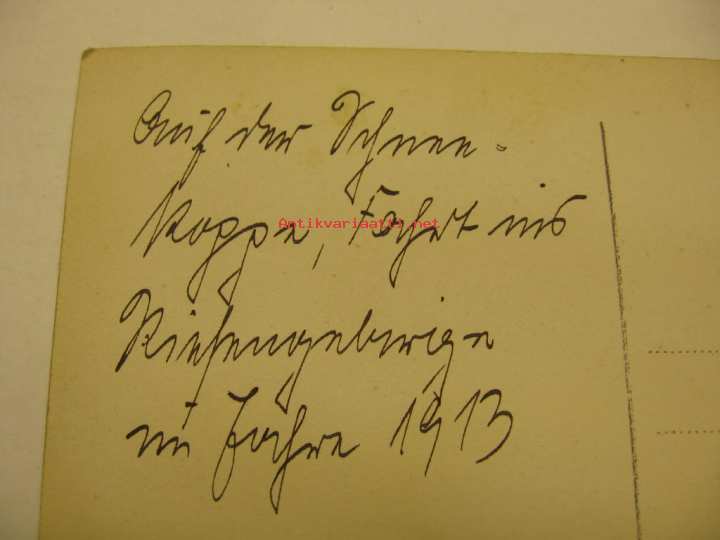 Auf der Schnee-
koppe, Fahrt ins
Antikvariaatti.net
Riesengebirge
im Jahre 1913